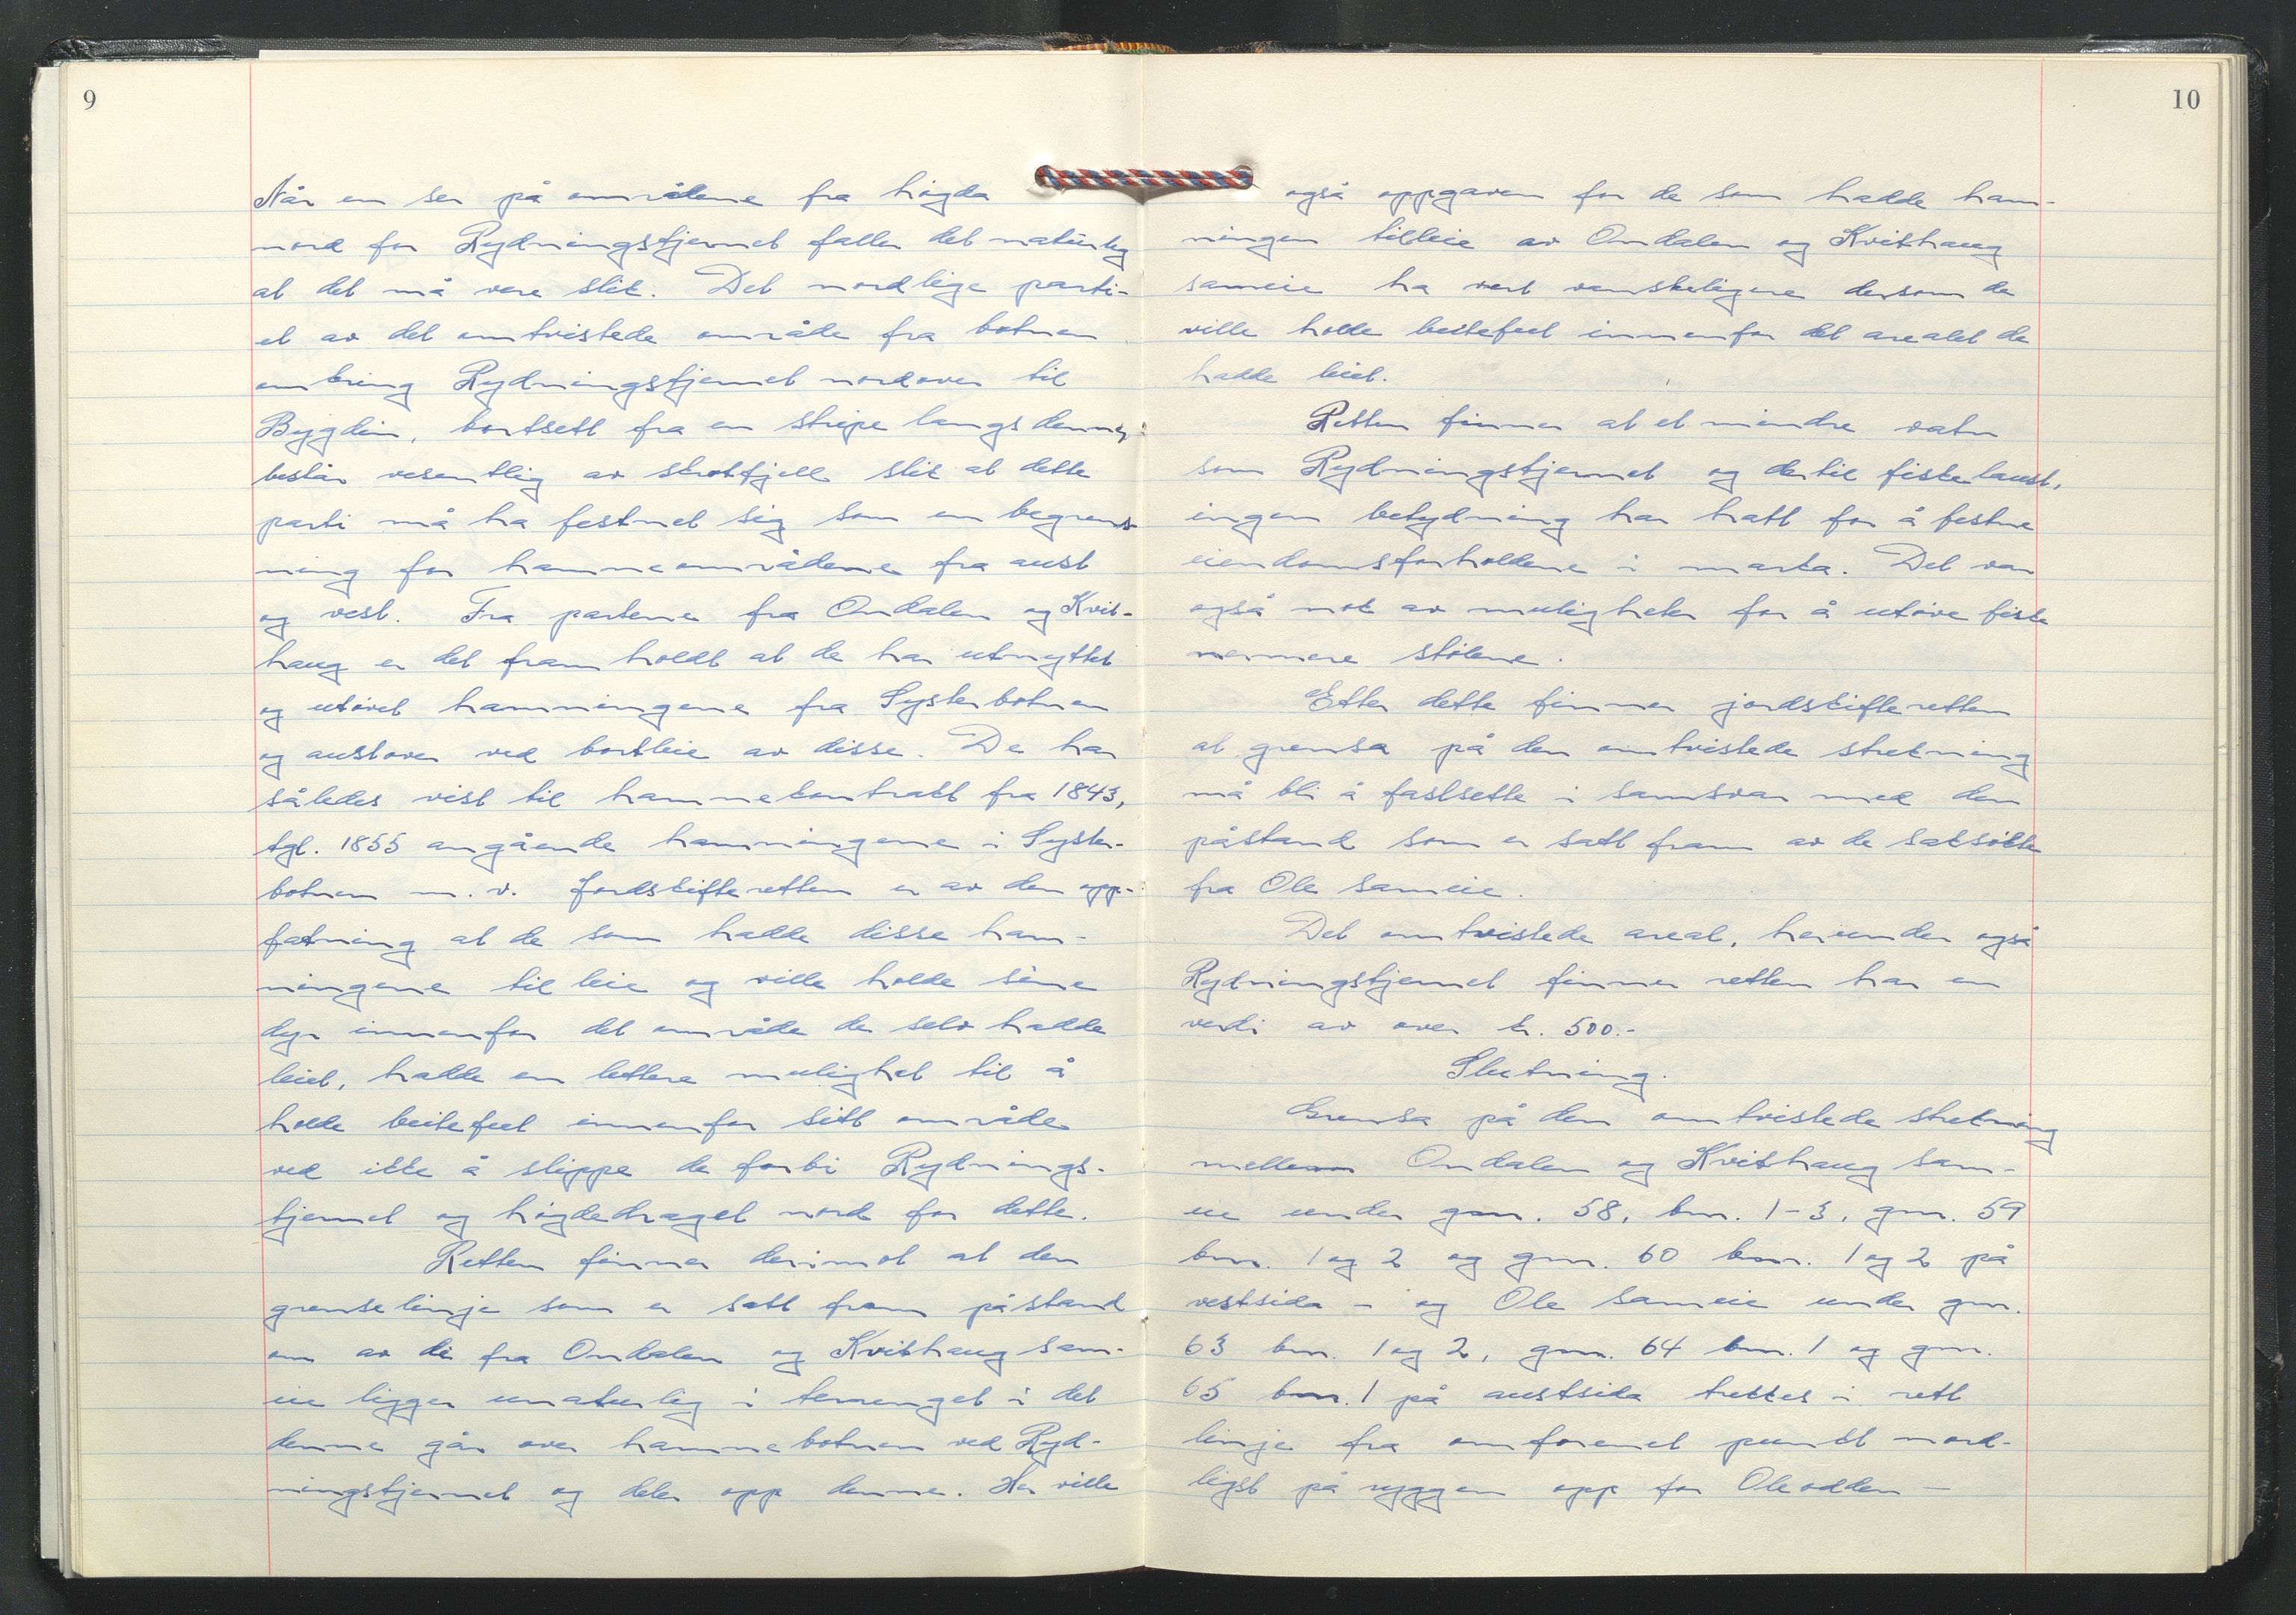 9
Når en ser på områdene fra høgda
nord for Rydningstjernet faller det naturlig
at det må vere slik. Det nordlige parti-
et av det omtvistede område fra botnen
omkring Rydningstjernet nordover til
Bygdin, bortsett fra en stripe langs denne,
består vesentlig av skrotfjell slik at dette
parti må ha festnet sig som en begrens-
ning for hamneområdene fra aust
og vest. Fra partene fra Ondalen og Kvit-
haug er det fram holdt at de har utnyttet
og utøvet hamningene fra Systerbotnen
og austover ved bortleie av disse. De har
således vist til hamnekontrakt fra 1843,
tgl. 1855 angående hamningene i Syster-
botnen m. v. Jordskifteretten er av den opp-
fatning at de som hadde disse ham-
ningene til leie og ville holde sine
dyr innenfor det område de selv hadde
leiet, hadde en lettere mulighet til å
holde beitefeet innenfor sitt område
ved ikke å slippe de forbi Rydnings-
tjernet og høgdedraget nord for dette.
Retten finner derimot at den
grenselinje som er satt fram påstand
om av de fra Ondalen og Kvithaug sam-
eie ligger unaturlig i terrenget i det
denne går over hamnebotnen ved Ryd-
ningstjernet og deler opp denne. Her ville
10
også oppgaven for de som hadde ham-
ningen tilleie av Ondalen og Kvithaug
sameie ha vert vanskeligere dersom de
ville holde beitefeet innenfor det arealet de
hadde leiet.
Retten finner at et mindre vatn
som Rydningstjernet og dertil fiskelaust,
ingen betydning har hatt for å festne
eiendomsforholdene i marka. Det var
også nok av muligheter for å utøve fiske
nermere stølene.
Etter dette finner jordskifteretten
at grensa på den omtvistede strekning
må bli å fastsette i samsvar med den
påstand som er satt fram av de saksøkte
fra Ole sameie.
Det omtvistede areal, herunder også
Rydningstjernet finner retten har en
verdi av over kr. 500.-
Slutning.
Grensa på den omtvistede strekning
mellem Ondalen og Kvithaug sam-
eie under gnr. 58, bnr. 1-3, gnr. 59
bnr. 1 og 2 og gnr. 60 bnr. 1 og 2 på
vestsida - og Ole sameie under gnr.
63 bnr. 1 og 2, gnr. 64 bnr. 1 og gnr.
65 bnr. 1 på austsida trekkes i rett
linje fra omforenet punkt nord-
ligst på ryggen opp for Oleodden -